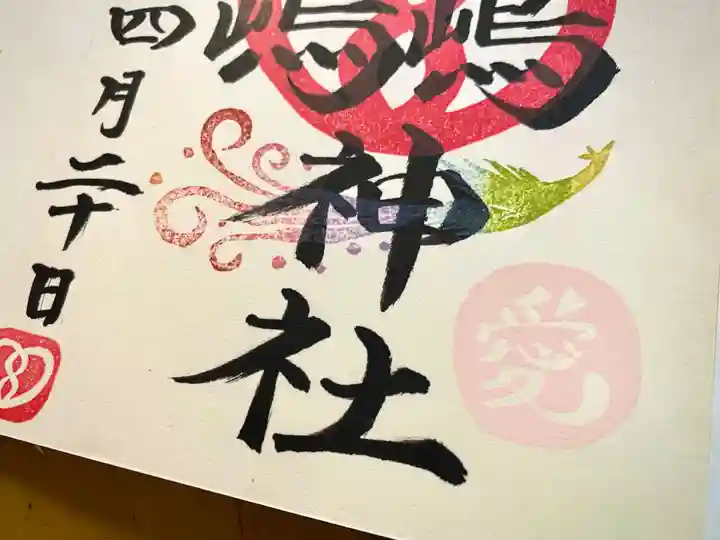 嶋神社
四月二十日
愛